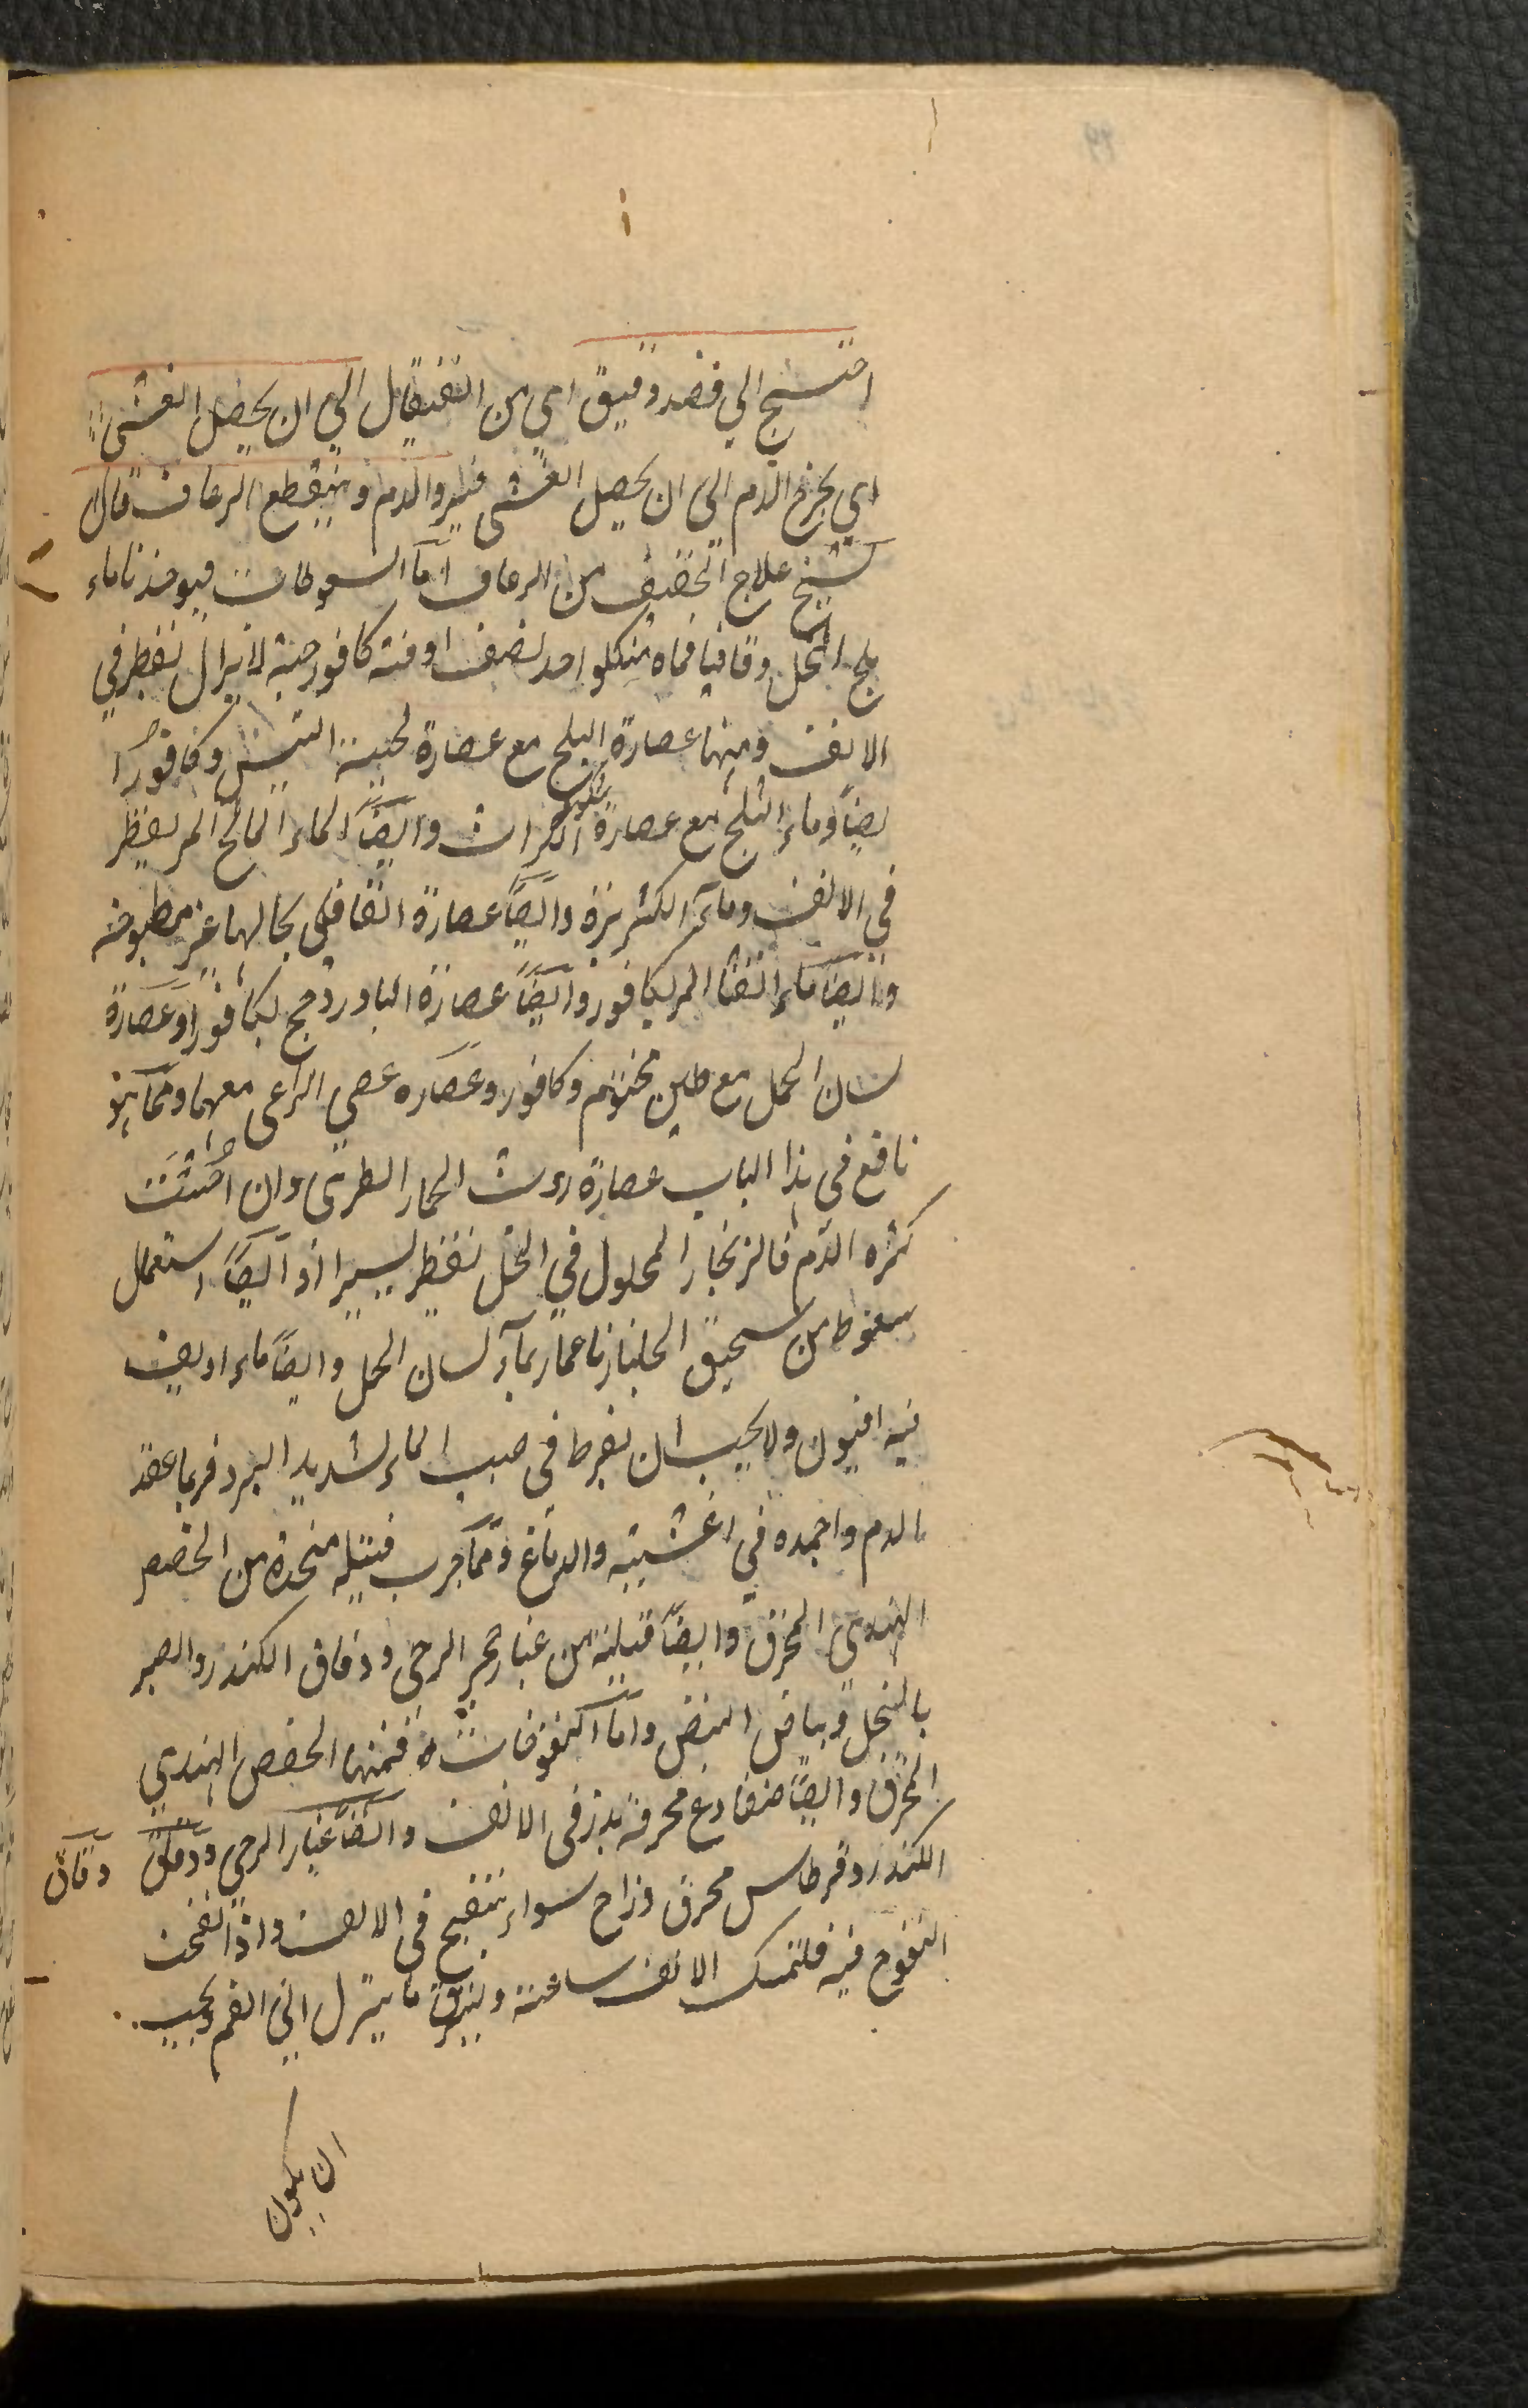 احتيج الي فصد دقيق اي من القيفال الي ان يحصل الغشى
اي يخرج الدم الي ان يحصل الغشى فيبرد الدم وينقطع الرعاف قال
الشيخ علاج الخفيف من الرعاف اما السعوطات فيوخذ ناماء
بلح النخل وقاقيا فماه منكلواحد نصف اوقية كافور حبة لايزال نقطر في
الانف ومنها عصارة البلح مع عصارة لحية التيس وكافورا
يضاً وماء الثلج مع عصارة الكراث وايضاً الماء المالح المر يقطر
في الانف وماء الكزبرة وايضاً عصارة القاقلى بحالها غير مطبوخة
وايضاً ماء القثا المر بكافور وايضاً عصارة البادروج بكافور وعصارة
لسان الحمل مع طين مختوم وكافور وعصاره عصي الراعي معهما ومما هو
نافع في هذا الباب عصارة روث الحمار الطرى وان احتثت
كثره الدم فالزنجار المحلول في الخل نقطر يسيرا او ايضاً استعمال
سعوط من سحيق الجلنار ناعما بماء لسان الحمل وايضاً ماء اديف
فيه افيون ولا يجب ان نفرط في صب الماء لشديد البرد فربما عقد
الدم واجمده في اغشيته والدماغ ومما جرب فتيله متخذة من الحضض
الهندي المحرق وايضاً فتيلة من غبار حجر الرحى ودقاق الكندر والصبر
بالخل وبياض البيض واما النفوخات فمنها الحضض الهندي
المحرق وايضاً ضفادع محرقة يذر في الانف وايضاً غبار الرحى ودقاق دقاق
الكندر وقرطاس محرق وزاج سواء ينفخ في الانف واذا نفخت
النفوخ فيه فلتمسك الانف ساعة ويبزق ما ينزل الي الفم ويجب
ان يكون